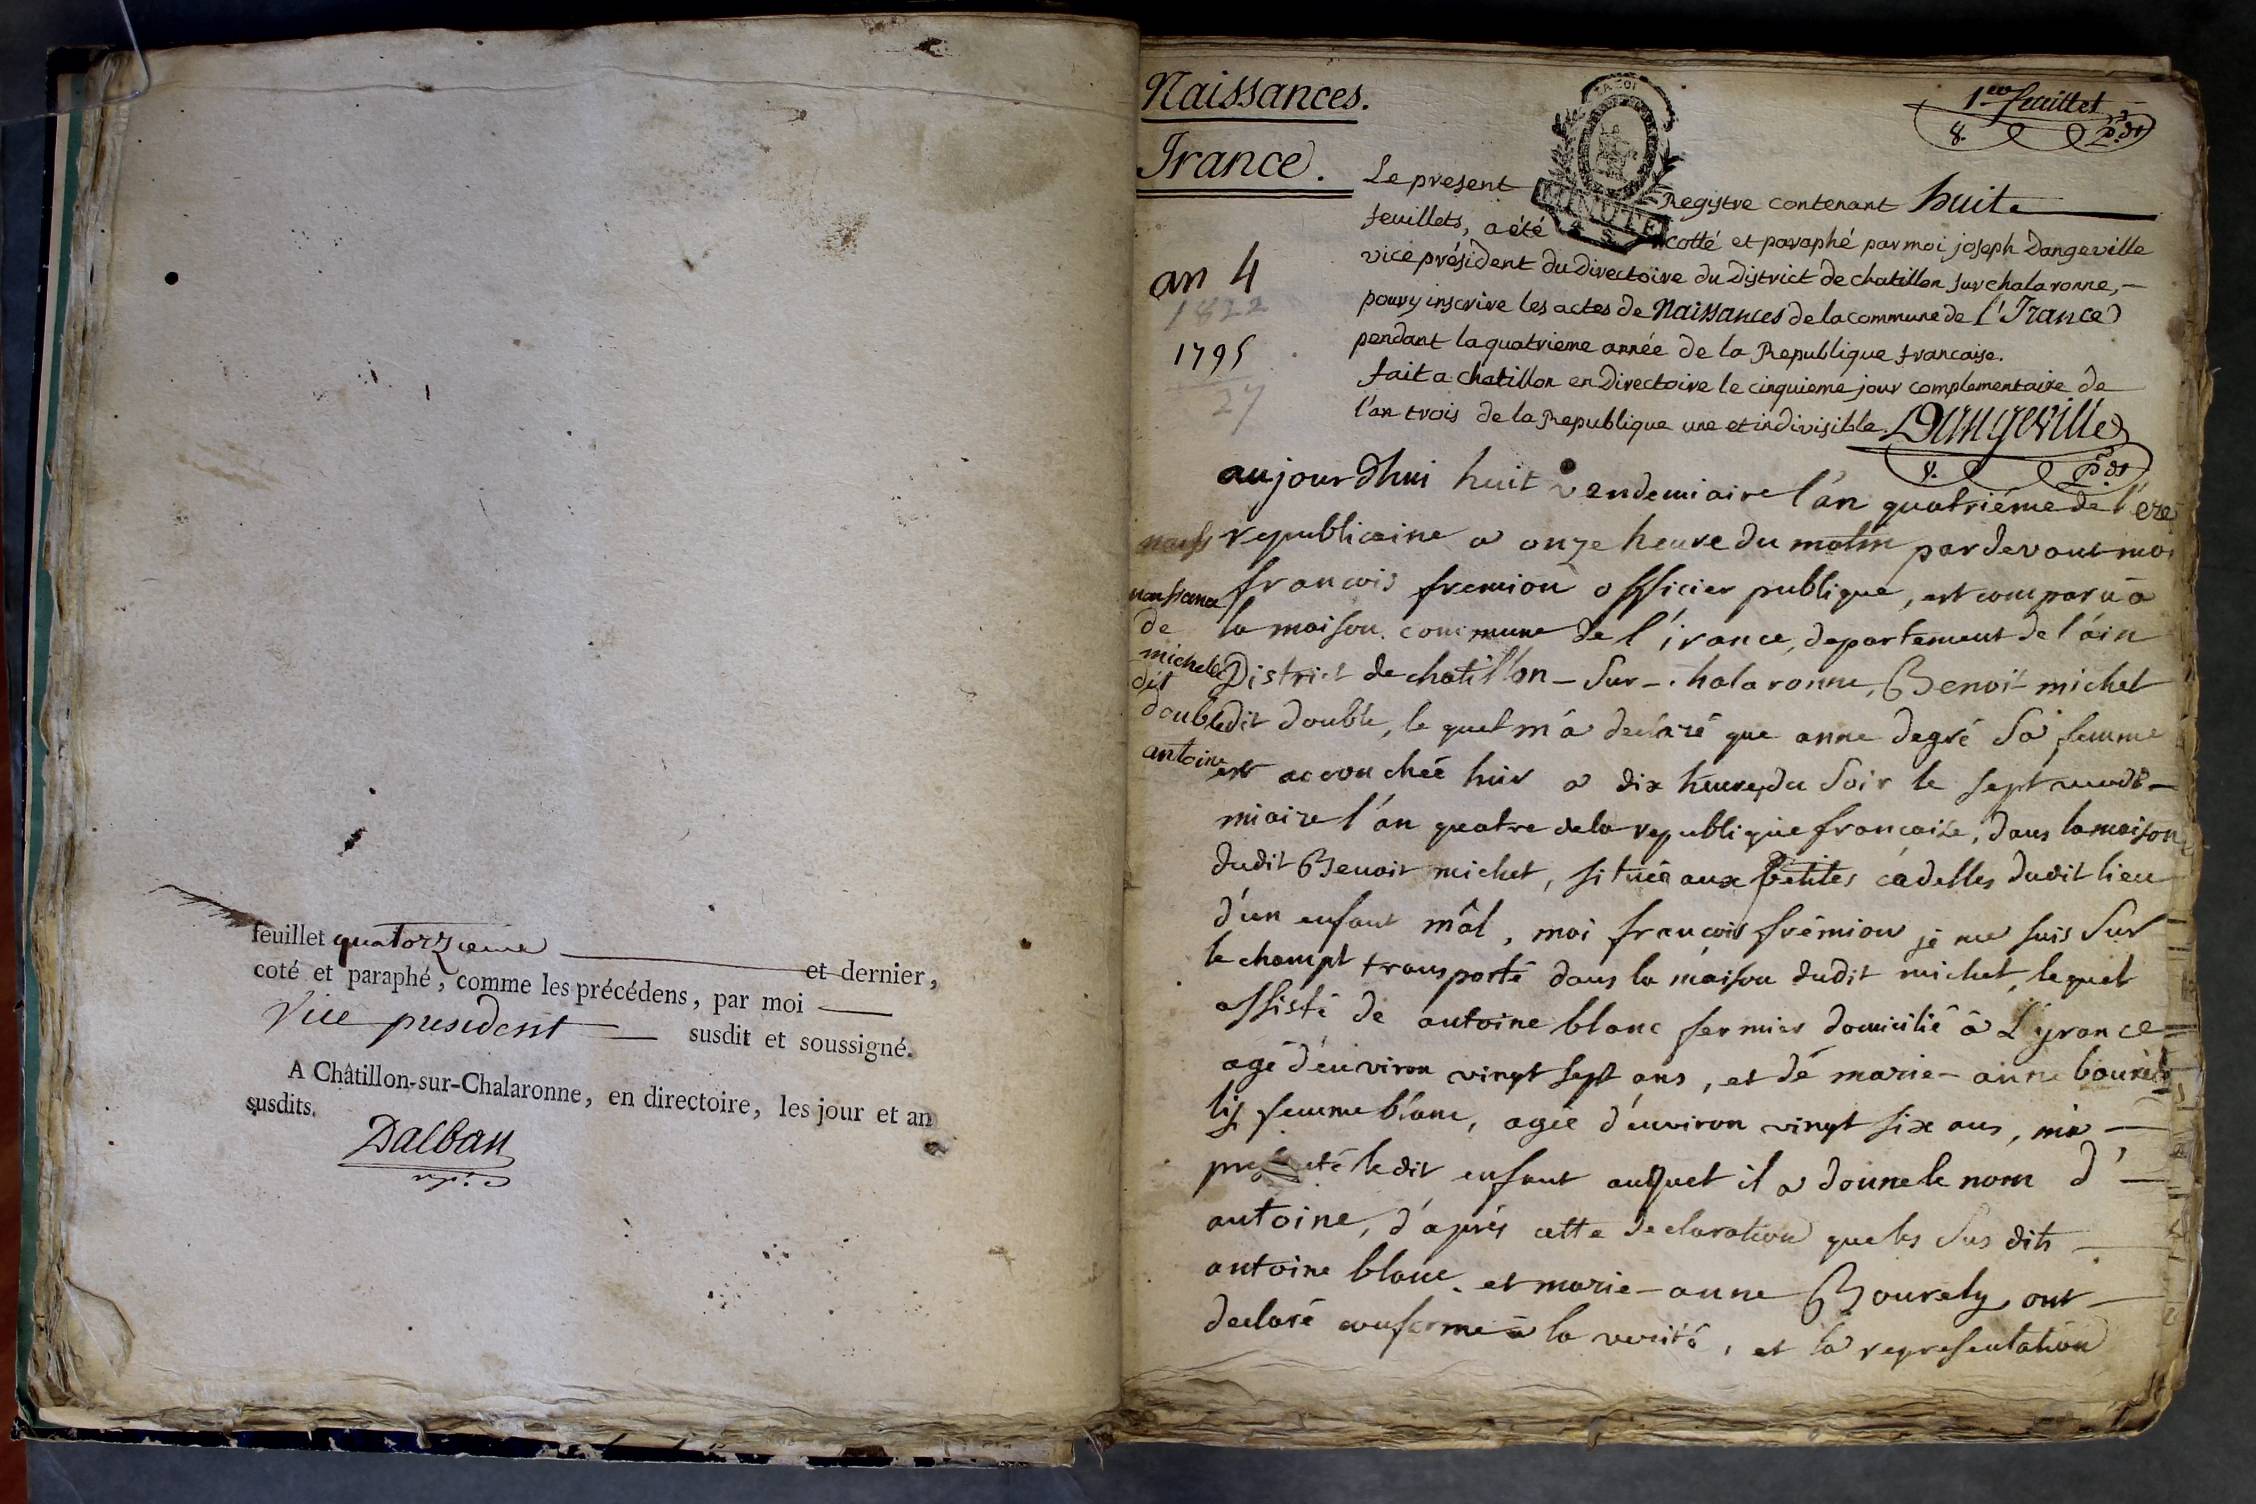 feuillet quatorzieme et dernier,
coté et paraphé, comme les précédens, par moi
Vice president susdit et soussigné.
A Châtillon-sur-Chalaronne, en directoire, les jour et an
susdits.
Dalban
Naissances.
Irance.
an 4
1822
1795
27
1er feuillet
8. p. dt
MINUTE
Le present Registre contenant huit
feuillets, a été cotté et paraphé par moi joseph Dangeville
vice président du Directoire du District de chatillon sur chalaronne,
pour y inscrire les actes de Naissances de la commune de l'Irance
pendant la quatrieme année de la Republique francaise.
fait a chatillon en Directoire le cinquieme jour complementaire de
l'an trois de la Republique une et indivisible. Dangeville
8. p. dt
naissance
de
michel
dit
double
antoine
aujourdhui huit vendemiaire l'an quatriéme de l'ere
republicaine a onze heure du matin pardevant moi
francois fremion officier publique, est comparu a
la maison commune de l'irance, departement de l'ain
District de chatillon-sur-chalaronne, Benoit michel
dit double, le quel m'a declaré que anne degré sa femme
est accouchée hier a dix heures du soir le sept vende-
miaire l'an quatre de la republique francaise, dans la maison
dudit Benoit michel, située aux petites cadelles dudit lieu
d'un enfant mâl, moi francois frémion je me suis sur
le champt transporté dans la maison dudit michel, lequel
assisté de antoine blanc fermier domicilié à L'yrance
agé d'environ vingt sept ans, et de marie-anne boure
femme blanc, agée d'environ vingt six ans, m'a
presenté ledit enfant auquel il a donné le nom d'
antoine, d'aprés cette declaration que les sus dits
antoine blanc et marie-anne Bourely ont
declaré conforme à la verité, et la representation